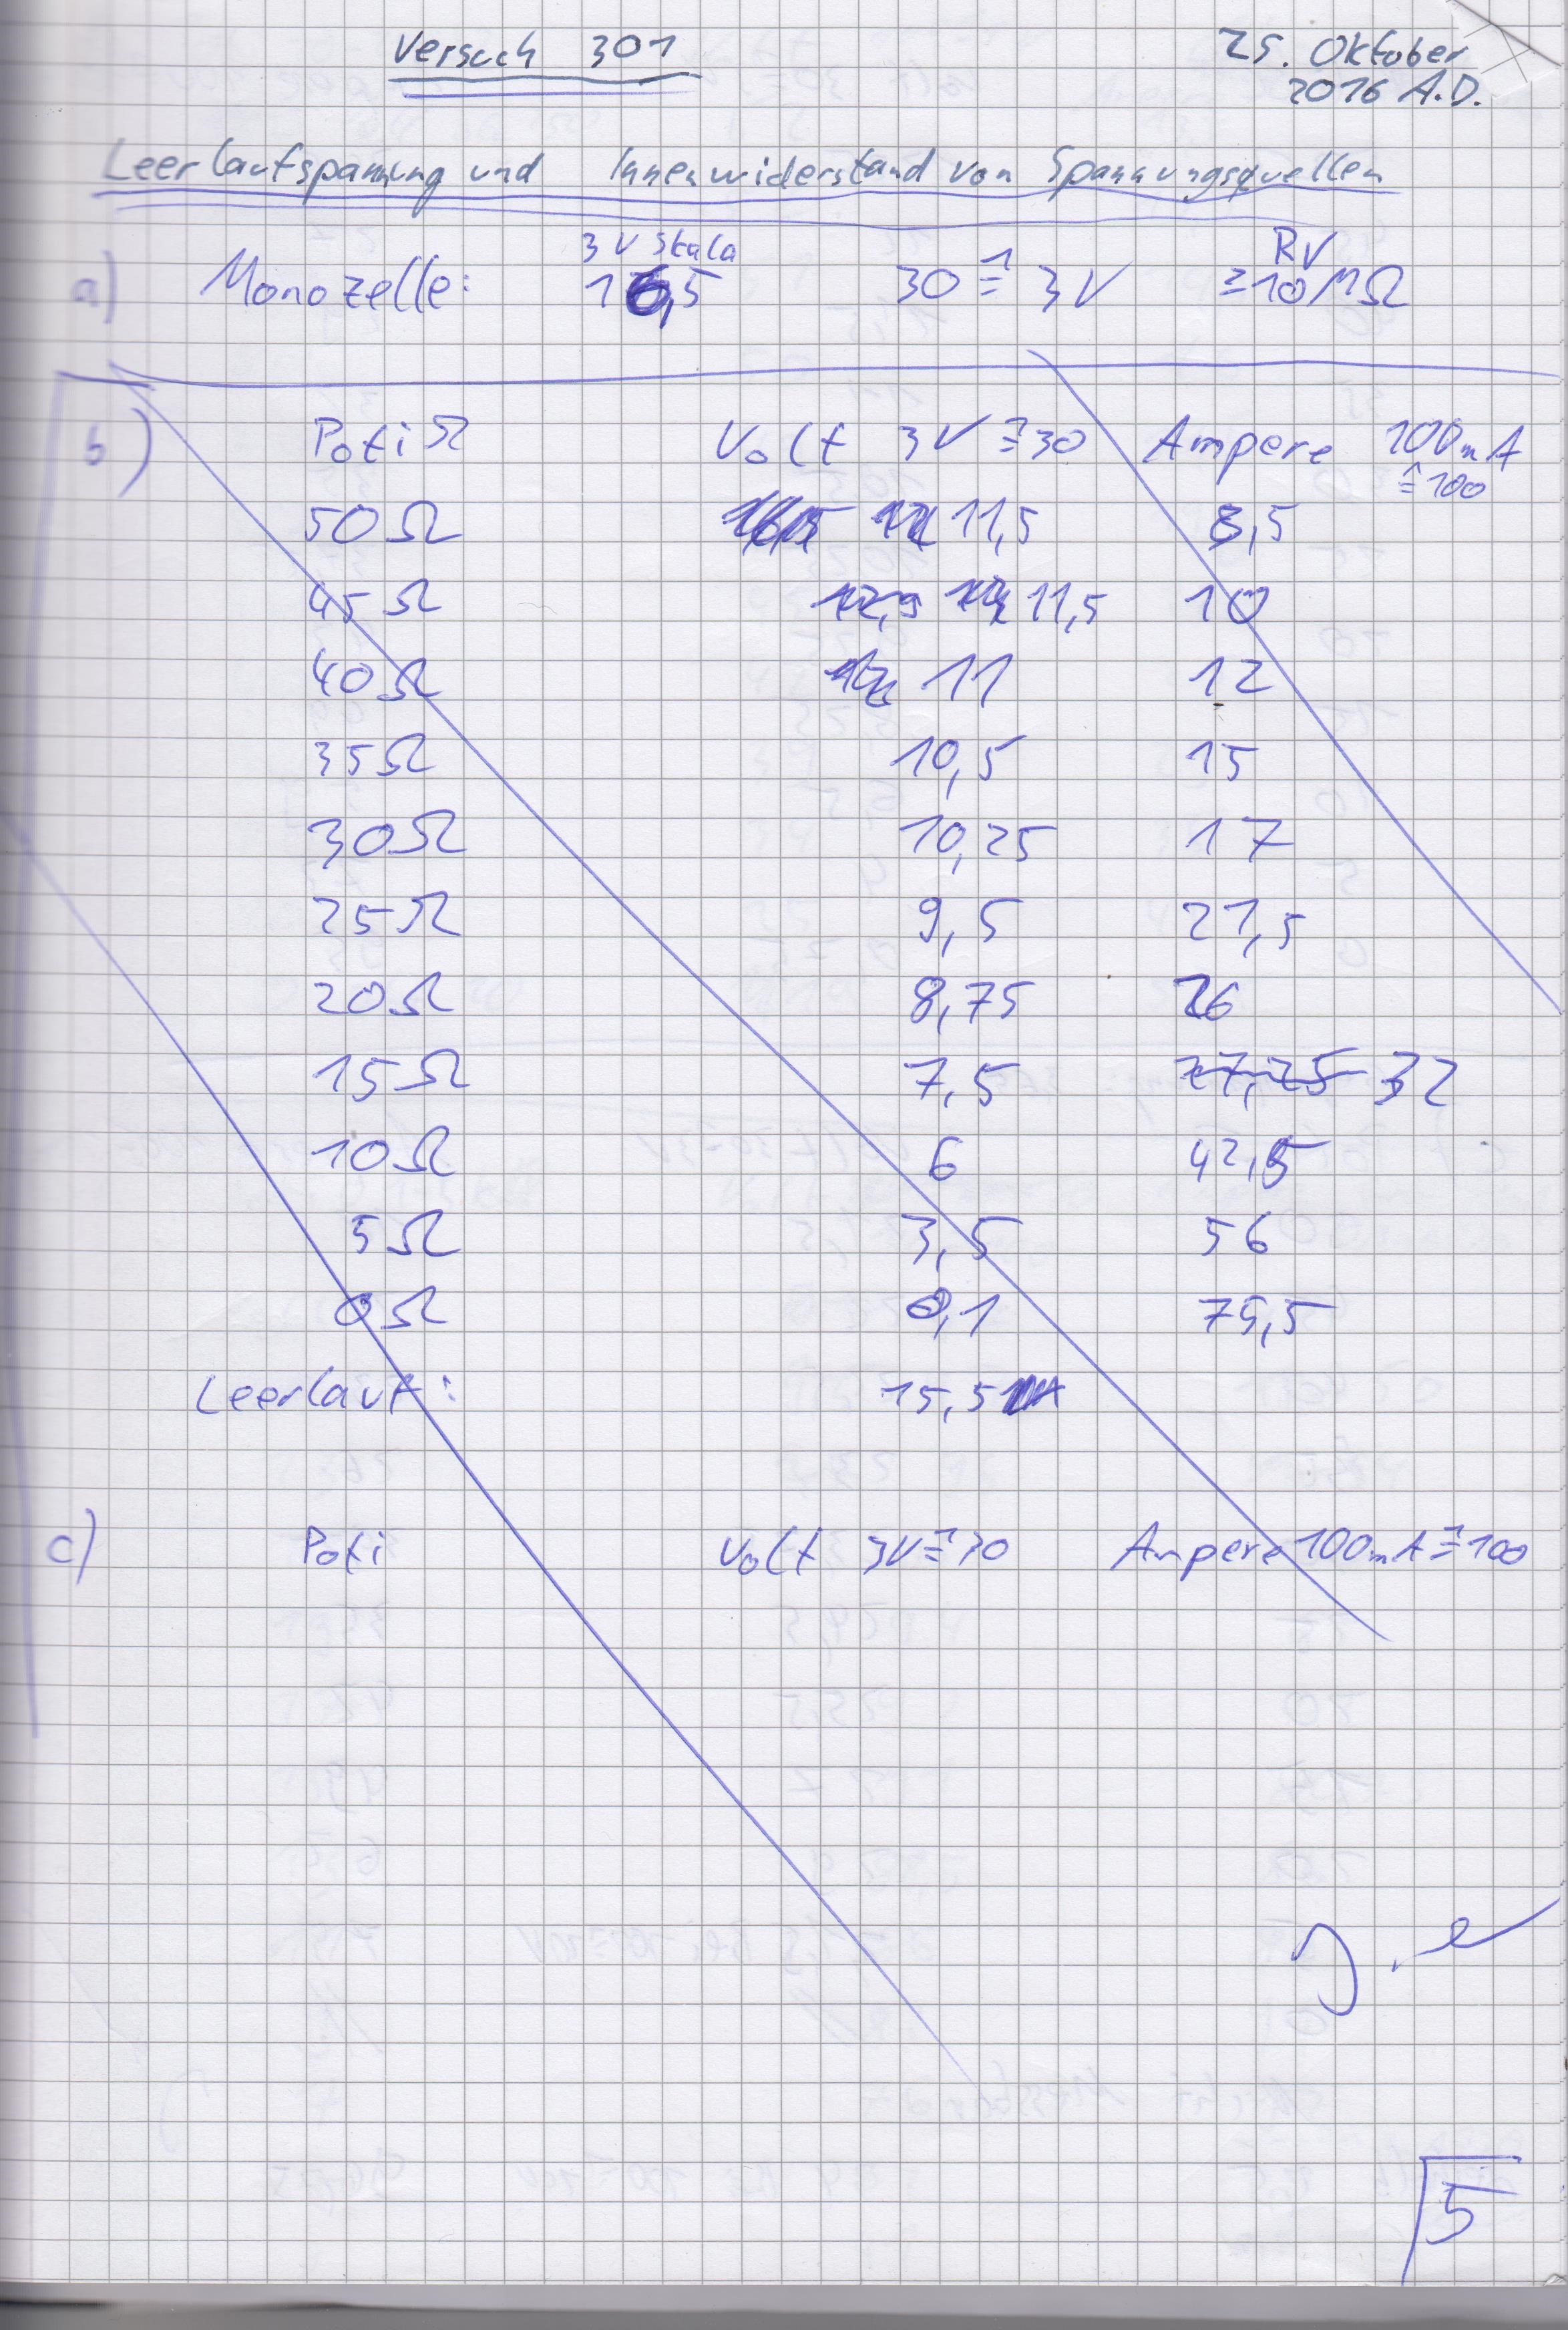 Versuch 301
25. Oktober
2016 A.D.
Leerlaufspannung und Innenwiderstand von Spannungsquellen
a) Monozelle: 3V Skala 16,5 30 ≙ 3V RV ≥10MΩ
b) Poti Ω Volt 3V ≙ 30 Ampere 100mA ≙ 100
50Ω 11,5 8,5
45Ω 11,5 10
40Ω 11 12
35Ω 10,5 15
30Ω 10,25 17
25Ω 9,5 21,5
20Ω 8,75 26
15Ω 7,5 27,25 32
10Ω 6 42,5
5Ω 3,5 56
0Ω 0,1 79,5
Leerlauf: 15,5
c) Poti Volt 3V ≙ 30 Ampere 100mA ≙ 100
5